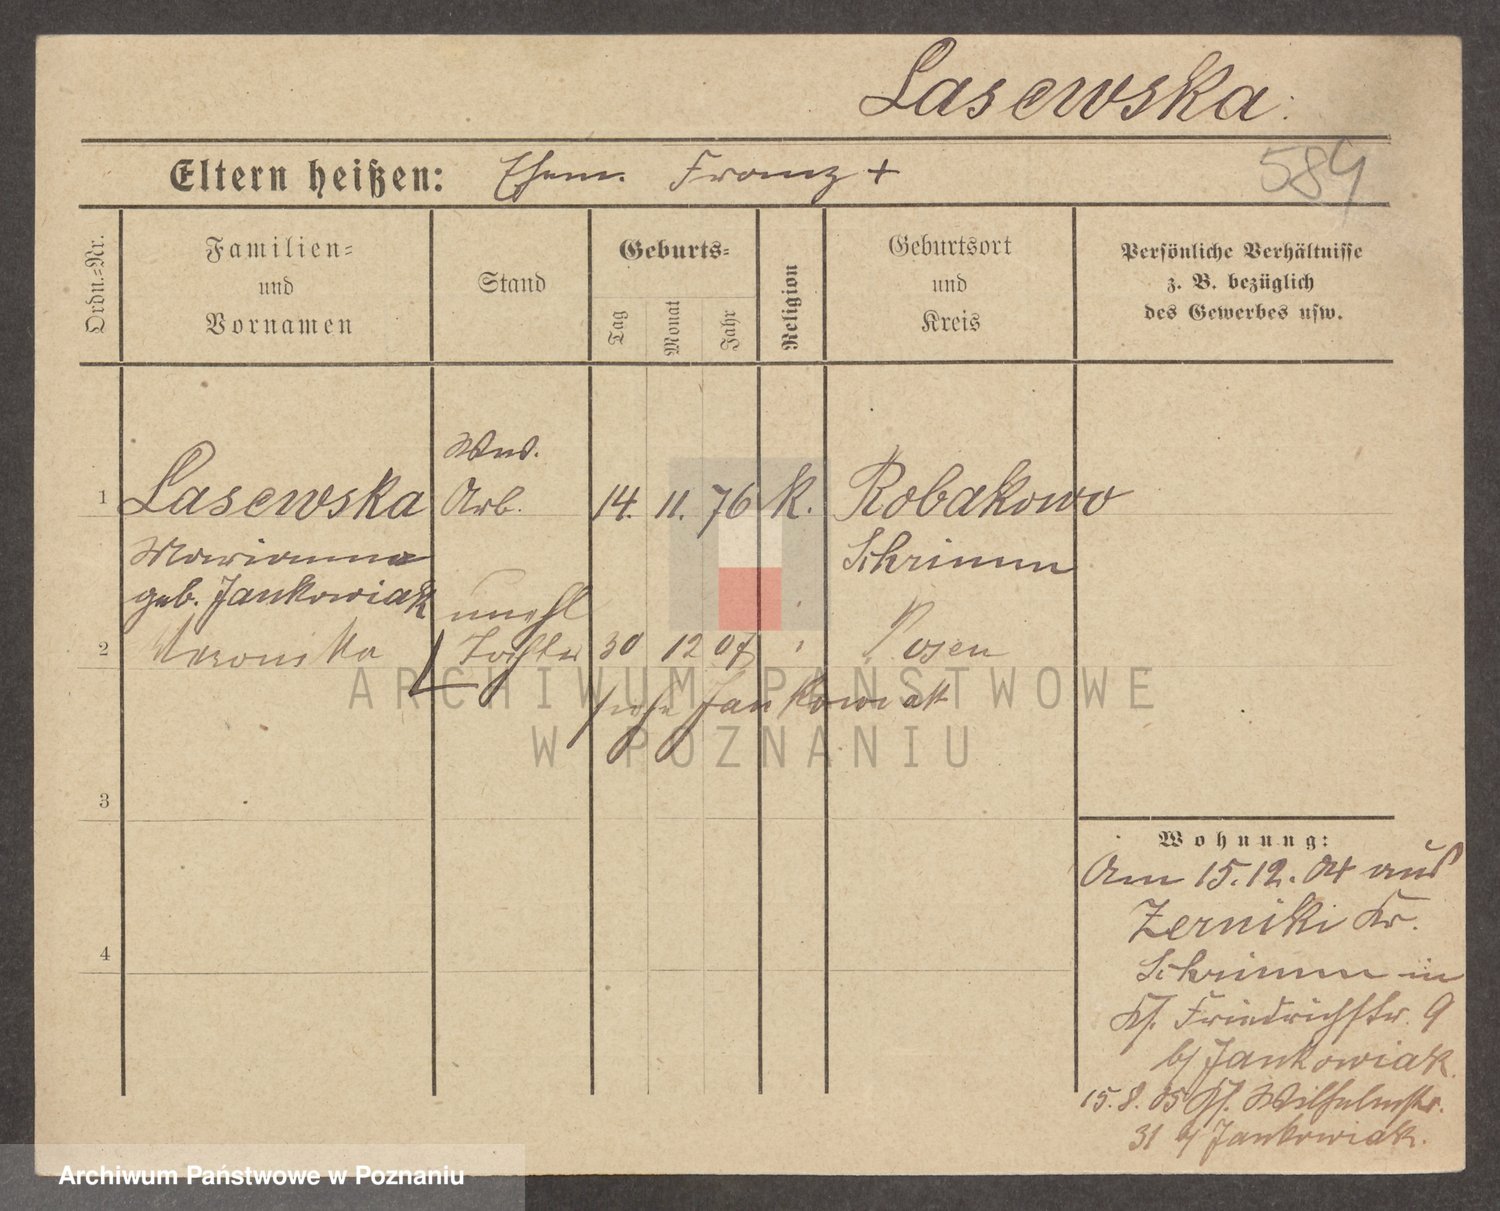 Lasewska.
589
Eltern heißen: Ehem. Franz +
Ordn.=Nr.
Familien=
und
Vornamen
Stand
Geburts=
Tag
Monat
Jahr
Religion
Geburtsort
und
Kreis
Persönliche Verhältnisse
z. B. bezüglich
des Gewerbes usw.
Wwe.
1 Lasewska Arb. 14. 11. 76 k. Robakowo
Marianna Schrimm
geb. Jankowiak
unehl
2 Veronika Tochter 30 12 07 Posen
siehe Jankowiak
3
4
Wohnung:
Am 15.12.04 aus
Zerniki Kr.
Schrimm in
Friedrichstr. 9
b/ Jankowiak.
15.8.05 Wilhelmstr.
31 b/ Jankowiak.
ARCHIWUM PAŃSTWOWE
W POZNANIU
Archiwum Państwowe w Poznaniu